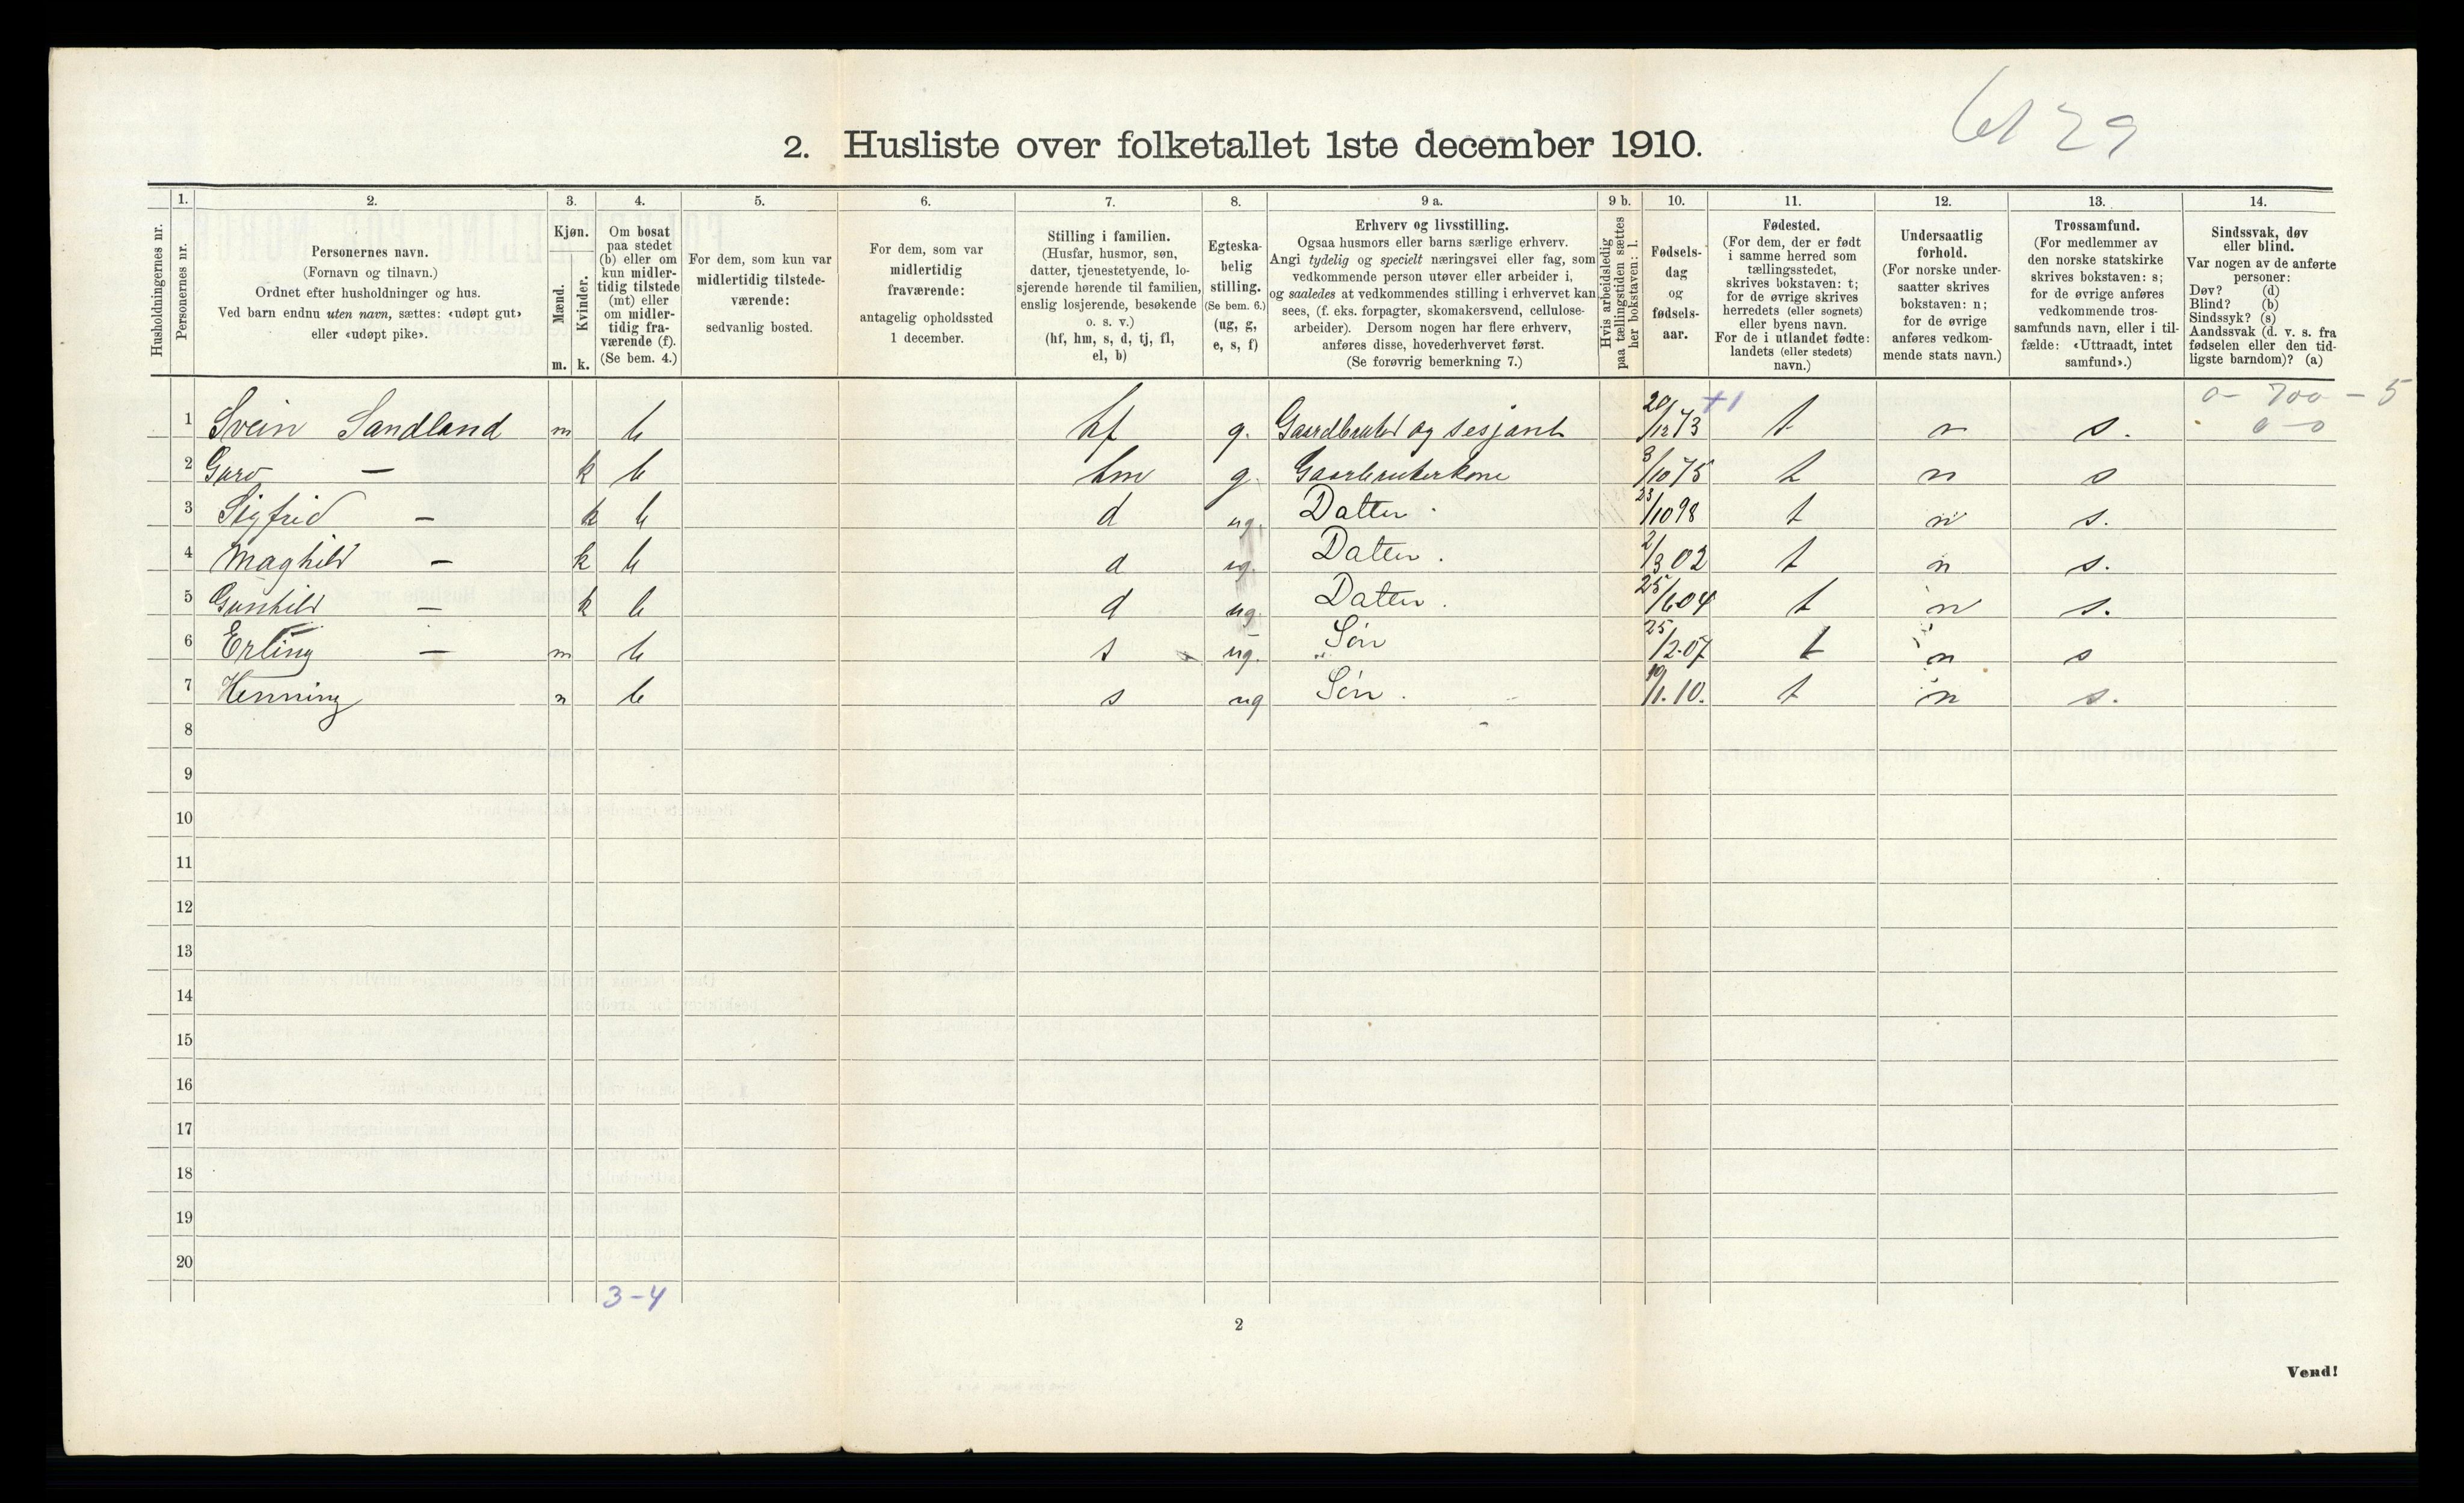 6129
2. Husliste over folketallet 1ste december 1910.
Husholdningernes nr.
1.
Personernes nr.
2.
Personernes navn.
(Fornavn og tilnavn.)
Ordnet efter husholdninger og hus.
Ved barn endnu uten navn, sættes: «udøpt gut»
eller «udøpt pike».
3.
Kjøn.
Mænd.
Kvinder.
m. k.
4.
Om bosat
paa stedet
(b) eller om
kun midler-
tidig tilstede
(mt) eller
om midler-
tidig fra-
værende (f).
(Se bem. 4.)
5.
For dem, som kun var
midlertidig tilstede-
værende:
sedvanlig bosted.
6.
For dem, som var
midlertidig
fraværende:
antagelig opholdssted
1 december.
7.
Stilling i familien.
(Husfar, husmor, søn,
datter, tjenestetyende, lo-
sjerende hørende til familien,
enslig losjerende, besøkende
o. s. v.)
(hf, hm, s, d, tj, fl,
el, b)
8.
Egteska-
belig
stilling.
(Se bem. 6.)
(ug, g,
e, s, f)
9 a.
Erhverv og livsstilling.
Ogsaa husmors eller barns særlige erhverv.
Angi tydelig og specielt næringsvei eller fag, som
vedkommende person utøver eller arbeider i,
og saaledes at vedkommendes stilling i erhvervet kan
sees, (f. eks. forpagter, skomakersvend, cellulose-
arbeider). Dersom nogen har flere erhverv,
anføres disse, hovederhvervet først.
(Se forøvrig bemerkning 7.)
9 b.
Hvis arbeidsledig
paa tællingstiden sættes
her bokstaven: l.
10.
Fødsels-
dag
og
fødsels-
aar.
11.
Fødested.
(For dem, der er født
i samme herred som
tællingsstedet,
skrives bokstaven: t;
for de øvrige skrives
herredets (eller sognets)
eller byens navn.
For de i utlandet fødte:
landets (eller stedets)
navn.)
12.
Undersaatlig
forhold.
(For norske under-
saatter skrives
bokstaven: n;
for de øvrige
anføres vedkom-
mende stats navn.)
13.
Trossamfund.
(For medlemmer av
den norske statskirke
skrives bokstaven: s;
for de øvrige anføres
vedkommende tros-
samfunds navn, eller i til-
fælde: «Uttraadt, intet
samfund».)
14.
Sindssvak, døv
eller blind.
Var nogen av de anførte
personer:
Døv? (d)
Blind? (b)
Sindssyk? (s)
Aandssvak (d. v. s. fra
fødselen eller den tid-
ligste barndom)? (a)
+1 0- 700 - 5
0 - 0
1 Svein Sandland m b hf g. Gaardbruker og sesjant 20/12 73 t n s.
2 Guro — k b hm g. Gaarbrukerkone 3/10 75 t n s
3 Sigfrid — k b d ug. Datter 23/10 98 t n s.
4 Maghild — k b d ug. Datter. 2/3 02 t n s.
5 Gunhild — k b d ug. Datter. 25/6 04 t n s.
6 Erling — m b s ug. Søn 25/2. 07 t n s
7 Henning m b s ug Søn. 19/1. 10. t n s.
8
9
10
11
12
13
14
15
16
17
18
19
20
3-4
2
Vend!